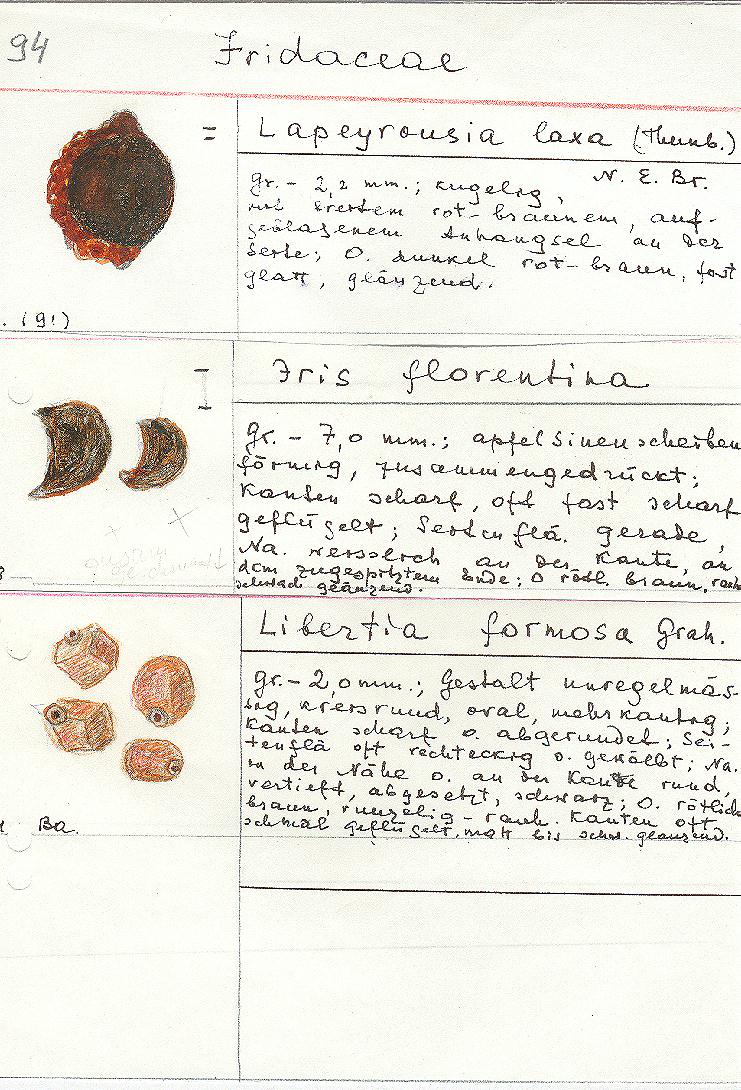 94
Iridaceae
=
Lapeyrousia laxa (Thunb.)
N. E. Br.
gr. - 2,2 mm.; kugelig,
mit breitem rot-braunem, auf-
geblasenem Anhängsel an der
Seite; O. dunkel rot-braun, fast
glatt, glänzend.
. (91)
Iris florentina
gr. - 7,0 mm.; apfelsinenscheiben
förmig, zusammengedrückt;
Kanten scharf, oft fast scharf
geflügelt; Seitenflä. gerade,
Na. weisslich an der Kante, an
dem zugespitztem Ende; O rötl. braun,
schwach glänzend.
Libertia formosa Grah.
gr. - 2,0 mm.; Gestalt unregelmäs-
sig, kreisrund, oval, mehrkantig;
Kanten scharf o. abgerundet; Sei-
tenflä oft rechteckig o. gewölbt; Na.
in der Nähe o. an der Kante rund,
vertieft, abgesetzt, schwarz; O. rötlich
braun, runzelig - rauh. Kanten oft
schmal geflügelt, matt bis schw. glänzend.
Ba.